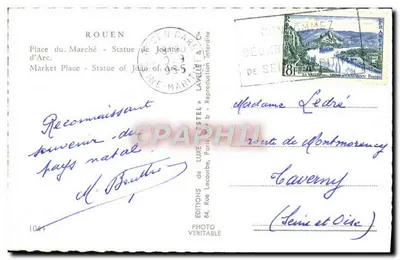 ROUEN
Place du Marché - Statue de Jeanne
d'Arc.
Market Place - Statue of Joan of
Reconnaissant
souvenir du
pays natal.
1081
EDITIONS de LUXE "ESTEL" LAVELLE &
64, Rue Lacourbe, Paris Reproduction Interdite
PHOTO
VERITABLE
8F
DE SEINE
Madame Ledré
route de Montmorency
Taverny
(Seine et Oise)
Cartorum.fr